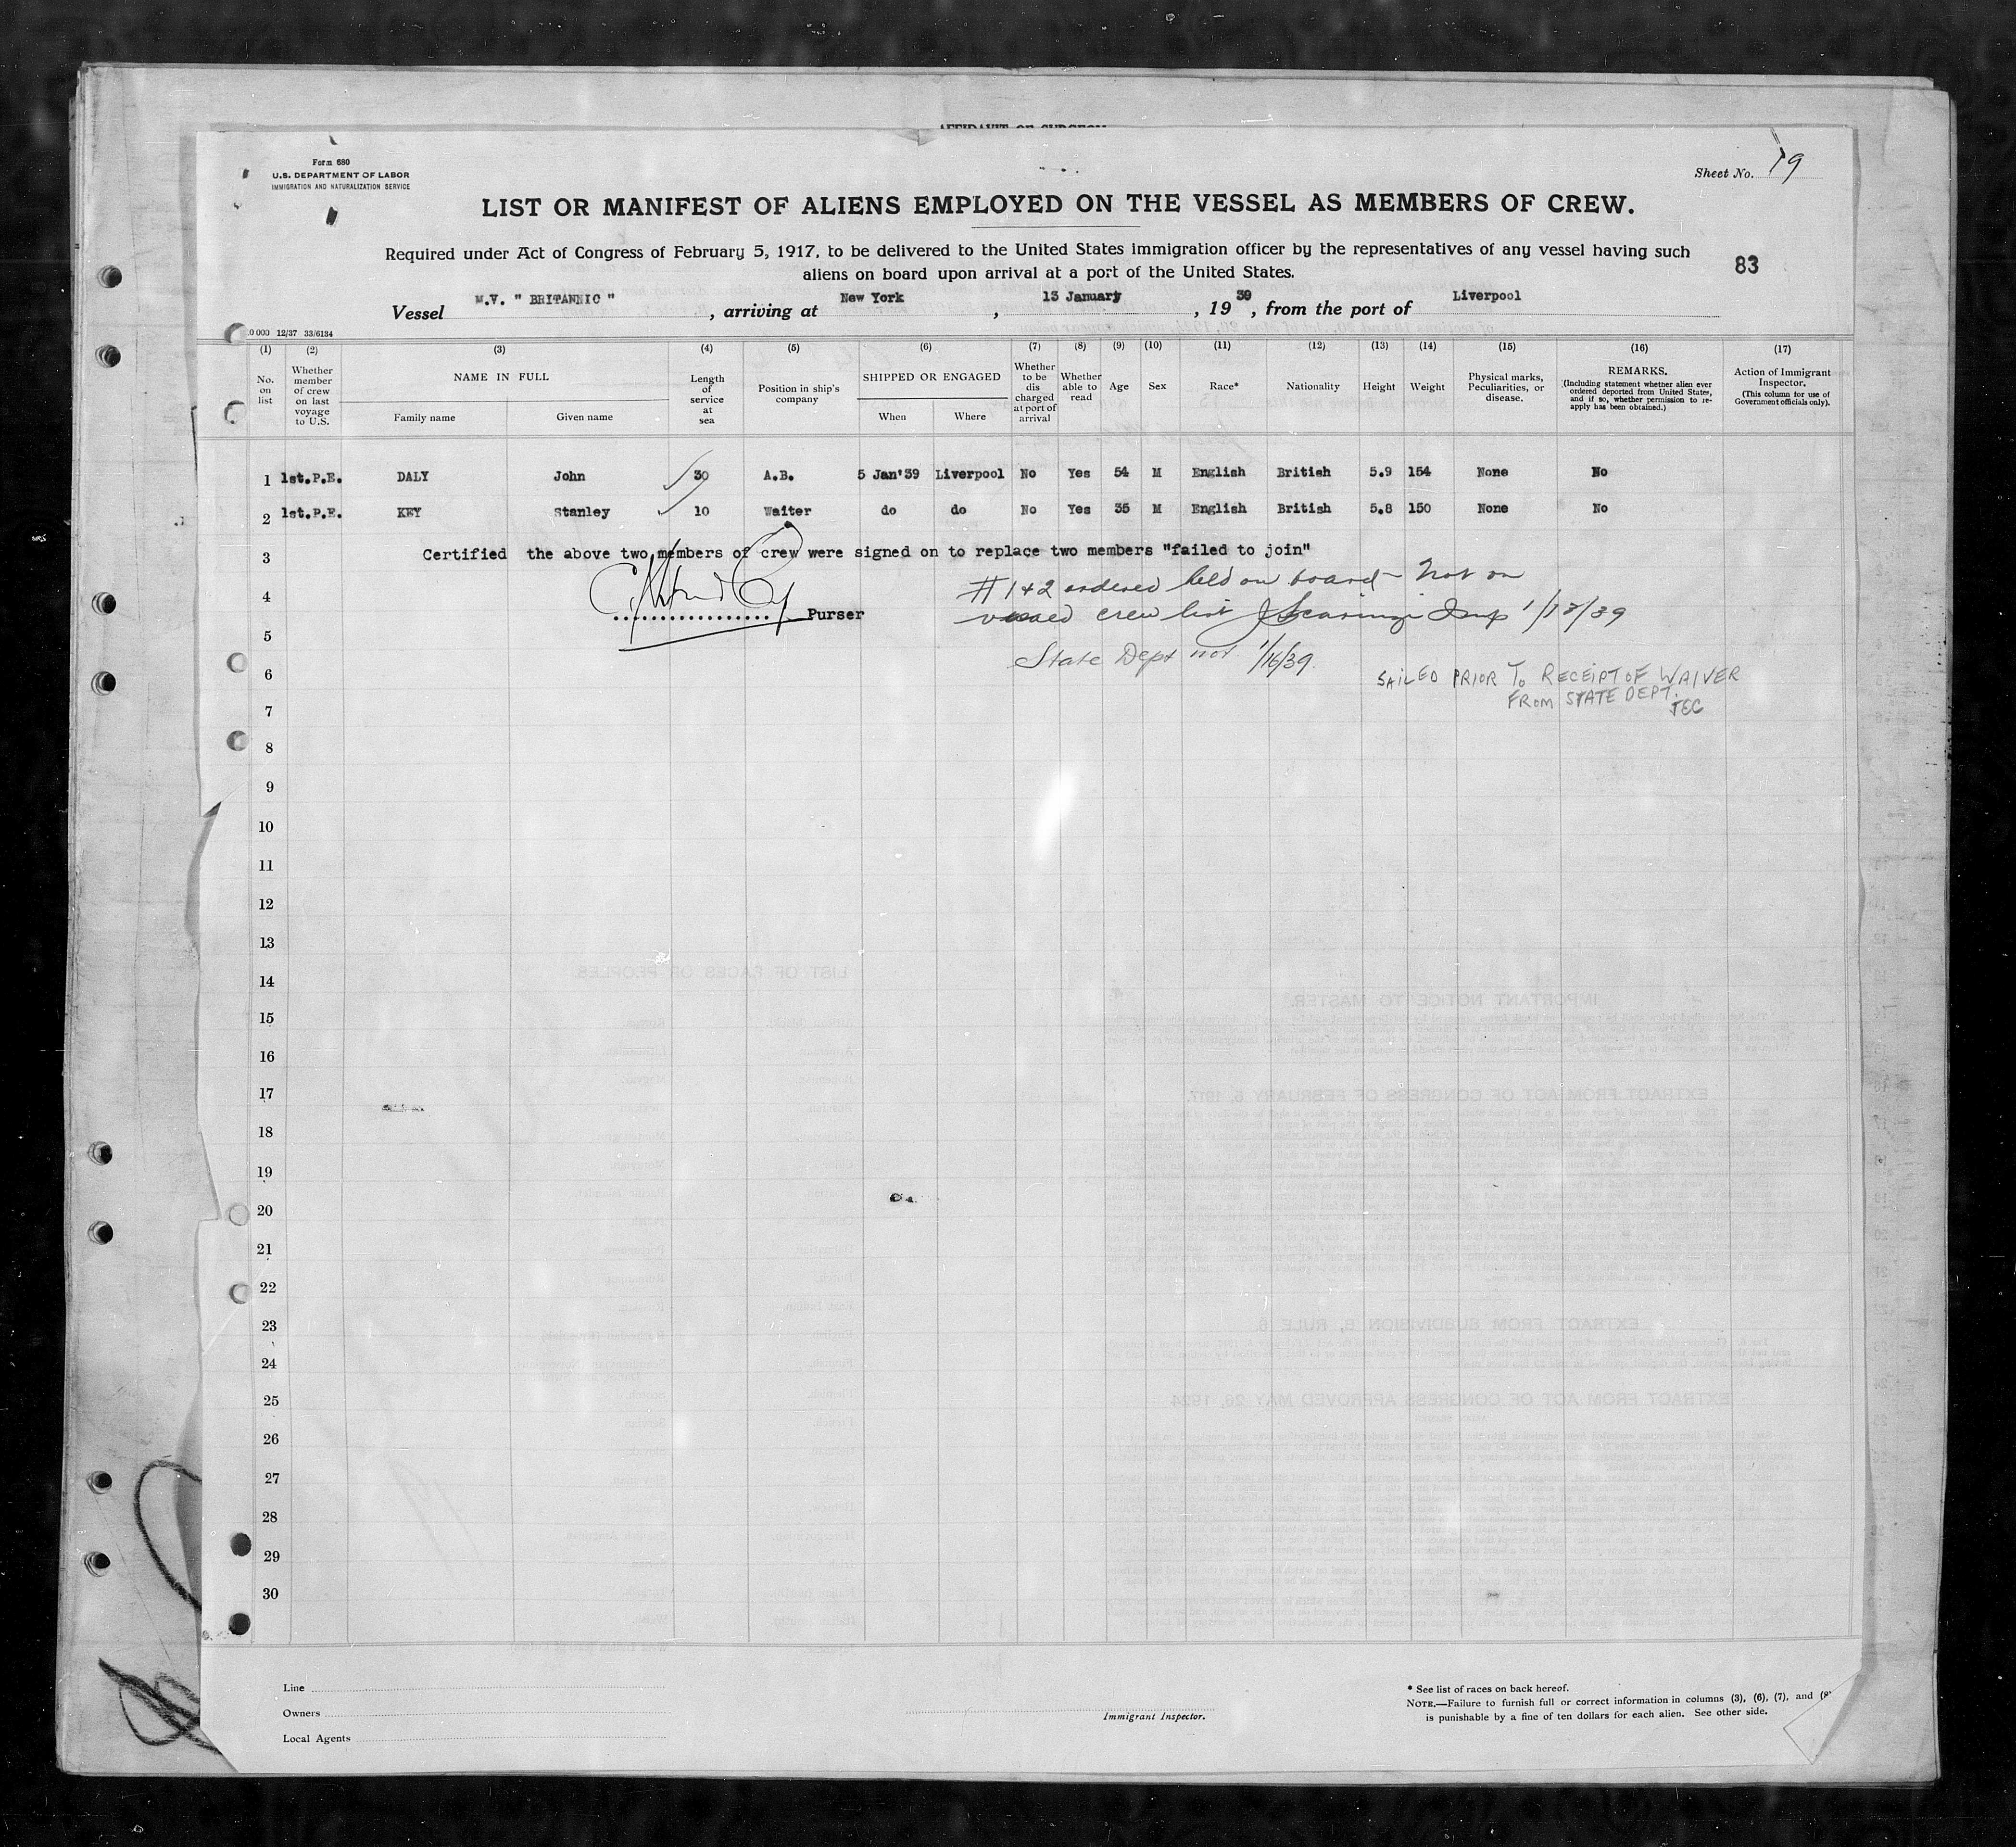 AFFIDAVIT OF SURGEON
Form 680
U.S. DEPARTMENT OF LABOR
IMMIGRATION AND NATURALIZATION SERVICE
Sheet No. 19
LIST OR MANIFEST OF ALIENS EMPLOYED ON THE VESSEL AS MEMBERS OF CREW.
Required under Act of Congress of February 5, 1917, to be delivered to the United States immigration officer by the representatives of any vessel having such
aliens on board upon arrival at a port of the United States.
83
Vessel M.V. " BRITANNIC " , arriving at New York , 13 January , 19 39 , from the port of Liverpool
0 000 12/37 33/6134
(1) (2) (3) (4) (5) (6) (7) (8) (9) (10) (11) (12) (13) (14) (15) (16) (17)
No. on list
Whether member of crew on last voyage to U.S.
NAME IN FULL
Family name Given name
Length of service at sea
Position in ship's company
SHIPPED OR ENGAGED
When Where
Whether to be dis charged at port of arrival
Whether able to read
Age
Sex
Race*
Nationality
Height
Weight
Physical marks, Peculiarities, or disease.
REMARKS.
(Including statement whether alien ever ordered deported from United States, and if so, whether permission to re-apply has been obtained.)
Action of Immigrant Inspector.
(This column for use of Government officials only).
1 1st.P.E. DALY John 30 A.B. 5 Jan'39 Liverpool No Yes 54 M English British 5.9 154 None No
2 1st.P.E. KEY Stanley 10 Waiter do do No Yes 35 M English British 5.8 150 None No
3 Certified the above two members of crew were signed on to replace two members "failed to join"
4 #1+2 ordered held on board - Not on
Purser
visaed crew list Insp 1/13/39
5
State Dept not 1/16/39
6 SAILED PRIOR TO RECEIPT OF WAIVER
FROM STATE DEPT.
JEC
7
8
9
10
11
12
13
14
15
16
17
18
19
20
21
22
23
24
25
26
27
28
29
30
LIST OF RACES OR PEOPLES
IMPORTANT NOTICE TO MASTER.
EXTRACT FROM ACT OF CONGRESS OF FEBRUARY 5, 1917.
EXTRACT FROM SUBDIVISION B, RULE 6.
EXTRACT FROM ACT OF CONGRESS APPROVED MAY 26, 1924
Line
Owners
Local Agents
Immigrant Inspector.
* See list of races on back hereof.
NOTE.—Failure to furnish full or correct information in columns (3), (6), (7), and (8)
is punishable by a fine of ten dollars for each alien. See other side.